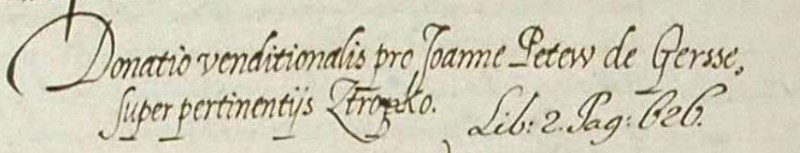 Donatio venditionalis pro Joanne Petew de Gersse,
super pertinentijs Ztropko. Lib: 2. Pag: 626.